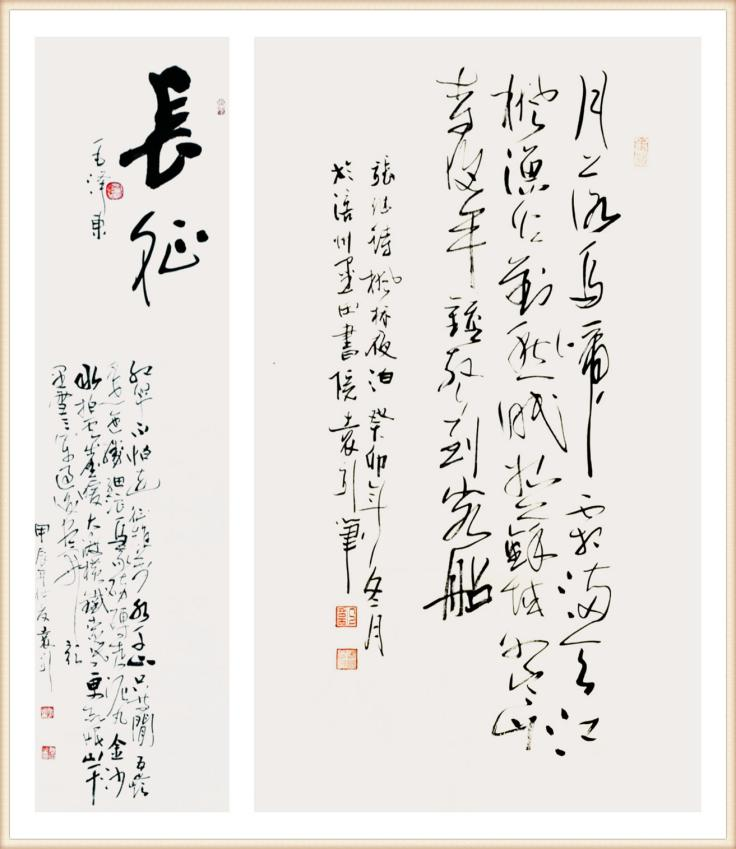 月落烏啼霜滿天江
楓漁火對愁眠姑蘇城外寒山
寺夜半鐘聲到客船
張繼詩楓橋夜泊癸卯年冬月
於涪州墨田書院袁引筆
長征
毛澤東
紅軍不怕遠征難萬水千山只等閒五嶺
逶迤騰細浪烏蒙磅礴走泥丸金沙
水拍雲崖暖大渡橋橫鐵索寒更喜岷山千
里雪三軍過後盡開顏
甲辰年仲夏袁引